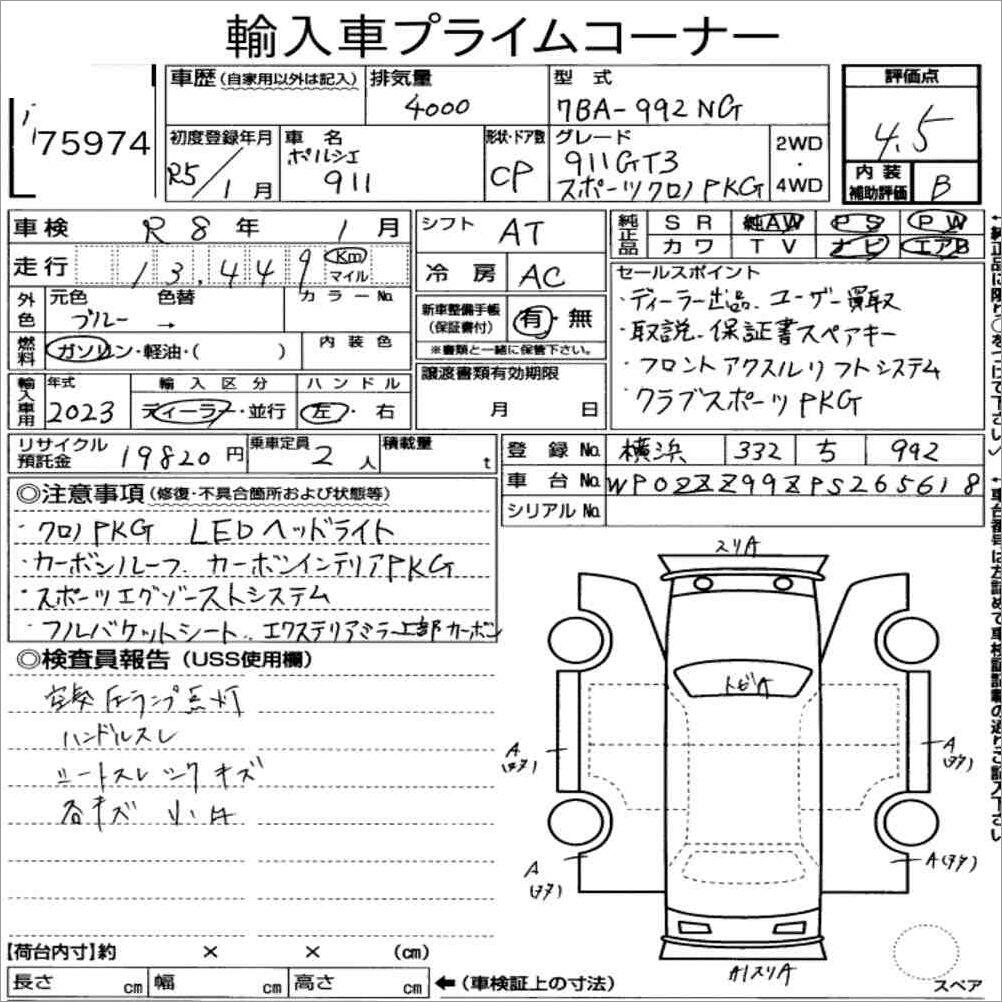 輸入車プライムコーナー
75974
車歴(自家用以外は記入) 排気量 型式 評価点
4000 7BA-992NG 4.5
初度登録年月 車名 形状・ドア数 グレード 2WD・4WD
R5/1月 ポルシェ 911 CP 911GT3 スポーツクロノPKG
内装補助評価 B
車検 R8年 1月 シフト AT
純正品 SR 純AW PS PW
カワ TV ナビ エアB
走行 13,449 Km マイル 冷房 AC
外色 元色 色替 カラーNo.
ブルー →
新車整備手帳(保証書付) 有・無
※書類と一緒に保管下さい。
セールスポイント
・ディーラー出品、ユーザー買取
・取説、保証書スペアキー
・フロントアクスルリフトシステム
・クラブスポーツPKG
燃料 ガソリン・軽油・( ) 内装色
輸入車用 年式 輸入区分 ハンドル
2023 ディーラー・並行 左・右
譲渡書類有効期限
月 日
リサイクル預託金 19820円 乗車定員 2人 積載量 t
登録No. 横浜 332 ち 992
車台No. WP0ZZZ99ZPS265618
シリアルNo.
◎注意事項(修復・不具合箇所および状態等)
・クロノPKG LEDヘッドライト
・カーボンルーフ、カーボンインテリアPKG
・スポーツエグゾーストシステム
・フルバケットシート、エクステリアミラー上部カーボン
◎検査員報告(USS使用欄)
空気圧ランプ点灯
ハンドルスレ
シートスレ シワ キズ
各キズ 小
スリA
トビA
A
A
A
A
A1スリA
スペア
【荷台内寸】約 × × (cm)
長さ cm 幅 cm 高さ cm ←(車検証上の寸法)